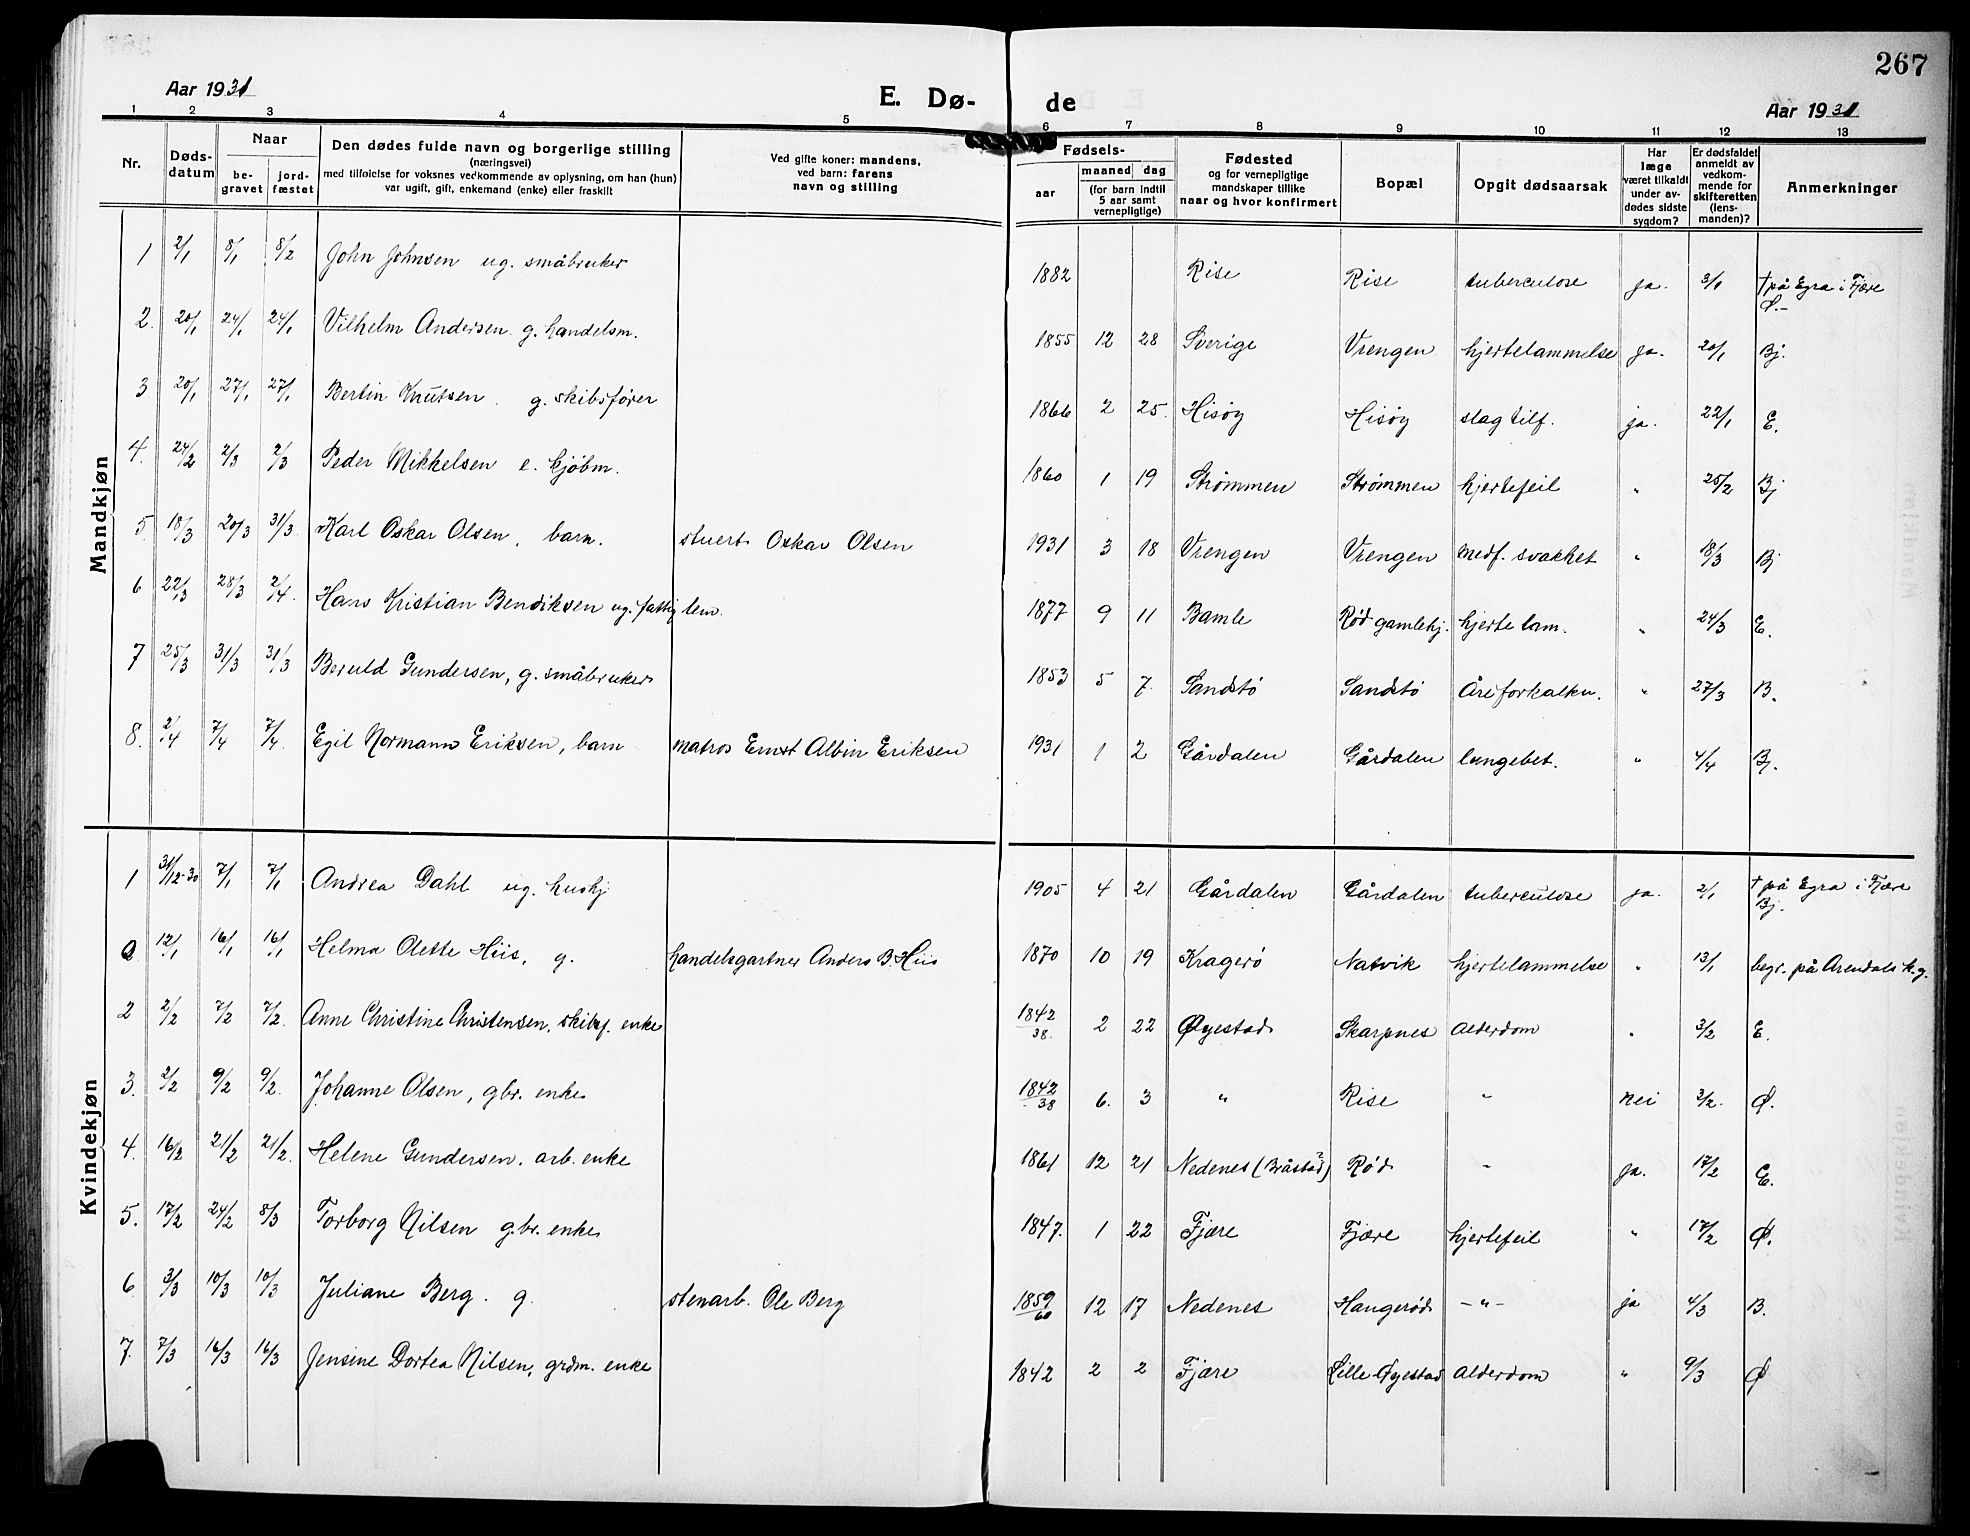 267
Aar 1931
E. Dø- de
Aar 1931
1 2 3 4 5 6 7 8 9 10 11 12 13
Nr.
Døds-
datum
Naar
be-
gravet
jord-
fæstet
Den dødes fulde navn og borgerlige stilling
(næringsvei)
med tilføielse for voksnes vedkommende av oplysning, om han (hun)
var ugift, gift, enkemand (enke) eller fraskilt
Ved gifte koner: mandens,
ved barn: farens
navn og stilling
Fødsels-
aar
maaned dag
(for barn indtil
5 aar samt
vernepligtige)
Fødested
og for vernepligtige
mandskaper tillike
naar og hvor konfirmert
Bopæl
Opgit dødsaarsak
Har
læge
været tilkaldt
under av-
dødes sidste
sygdom?
Er dødsfaldet
anmeldt av
vedkom-
mende for
skifteretten
(lens-
manden)?
Anmerkninger
Mandkjøn
1 2/1 8/1 8/2 John Johnsen ug. småbruker 1882 Rise Rise tuberculose ja. 3/1 † på Egra i Fjære
Ø.-
2. 20/1 24/1 24/1 Vilhelm Andersen g. handelsm. 1855 12 28 Sverige Vrengen hjertelammelse ja. 20/1 Bj.
3 20/1 27/1 27/1 Bertin Knutsen. g. skibsfører 1866 2 25. Hisøy Hisøy slagtilf. ja. 22/1 E.
4. 24/2 2/3 2/3 Peder Mikkelsen e. kjøbm. 1860 1 19 Strømmen Strømmen hjertefeil " 25/2 Bj
5. 18/3 20/3 31/3 Karl Oskar Olsen, barn. stuert Oskar Olsen 1931 3 18 Vrengen Vrengen medf. svakhet " 18/3 Bj
6 22/3 28/3 2/4. Hans Kristian Bendiksen ug. fattiglem. 1877 9 11 Bamle Rød gamlehj. hjertelam. " 24/3 E.
7 25/3 31/3 31/3 Beruld Gundersen, g. småbruker 1853 5 7. Sandstø Sandstø Åreforkalkn. " 27/3 B.
8. 2/4 7/4 7/4. Egil Normann Eriksen, barn matros Ernst Albin Eriksen 1931 1 2 Gårdalen Gårdalen lungebet. " 4/4 Bj.
Kvindekjøn
1 31/12-30 7/1 7/1 Andrea Dahl ug. hushj 1905 4 21 Gårdalen Gårdalen tuberculose ja. 2/1 † på Egra i Fjære
Bj.
0 12/1 16/1 16/1 Helma Olette Hiis, g. handelsgartner Anders B. Hiis 1870 10 19 Kragerø Natvik hjertelammelse " 13/1 begr. på Arendals k.g.
2 2/2 7/2 7/2. Anne Christine Christensen, skibsf. enke 1842/38. 2 22 Øyestad Skarpnes Alderdom " 3/2 E.
3. 2/2 9/2 9/2. Johanne Olsen, gbr. enke 1842/38 6. 3 " Rise " nei 3/2. Ø.
4. 16/2 21/2 21/2. Helene Gundersen. arb. enke 1861 12 21 Nedenes (Bråstad?) Rød " ja. 17/2 E.
5. 17/2 24/2 8/3 Torborg Nilsen gbr. enke 1847. 1 22 Fjære Fjære hjertefeil " 17/2 Ø.
6 3/3 10/3 10/3 Juliane Berg. g. stenarb. Ole Berg 1859/60 12 17 Nedenes Hangerød -"- ja 4/3 B.
7. 7/3 16/3 16/3 Jensine Dortea Nilsen, grdm. enke 1842 2 2 Fjære Lille Øyestad Alderdom " 9/3 Ø